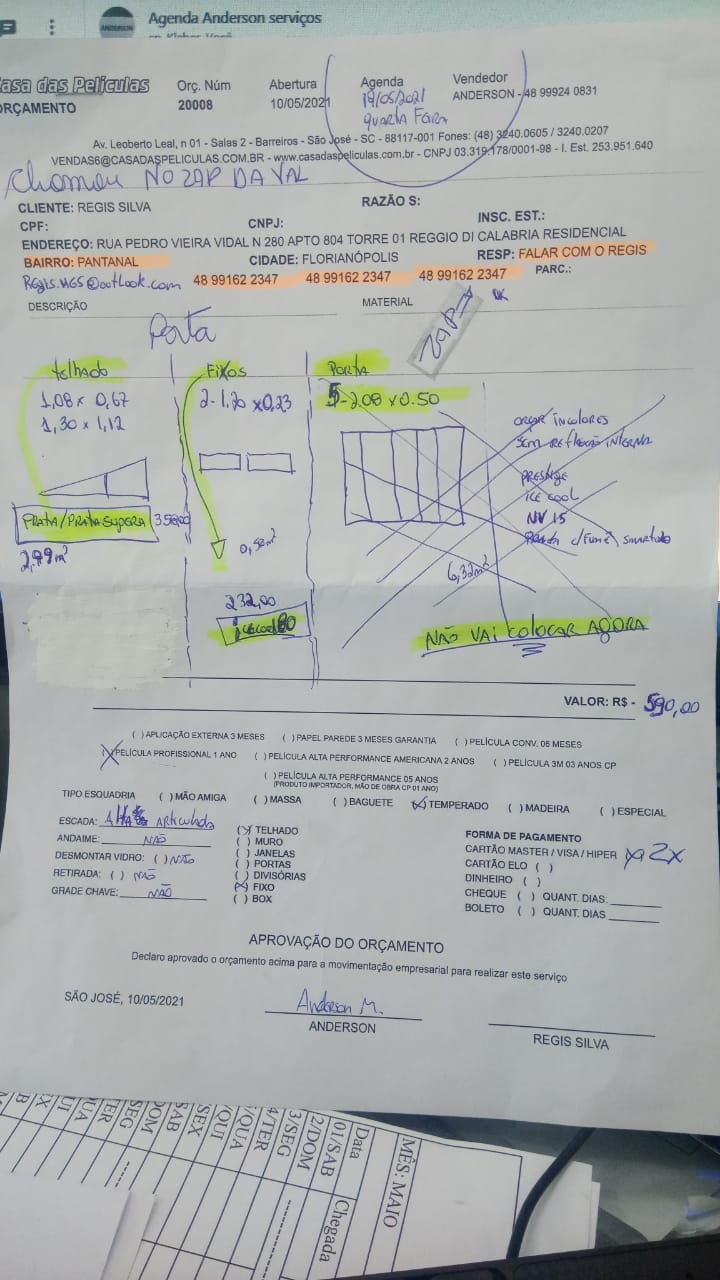 Agenda Anderson serviços
asa das Películas
ORÇAMENTO
Orç. Núm
20008
Abertura
10/05/2021
Agenda
19/05/2021
QUARTA FEIRA
Vendedor
ANDERSON - 48 99924 0831
Av. Leoberto Leal, n 01 - Salas 2 - Barreiros - São José - SC - 88117-001 Fones: (48) 3240.0605 / 3240.0207
VENDAS6@CASADASPELICULAS.COM.BR - www.casadaspeliculas.com.br - CNPJ 03.319.178/0001-98 - I. Est. 253.951.640
Chamou NO ZAP DA VAL
CLIENTE: REGIS SILVA
RAZÃO S:
CPF:
CNPJ:
INSC. EST.:
ENDEREÇO: RUA PEDRO VIEIRA VIDAL N 280 APTO 804 TORRE 01 REGGIO DI CALABRIA RESIDENCIAL
BAIRRO: PANTANAL
CIDADE: FLORIANÓPOLIS
RESP: FALAR COM O REGIS
Regis.MGS@outlook.com
48 99162 2347
48 99162 2347
48 99162 2347
PARC.:
DESCRIÇÃO
MATERIAL
ZAP
OK
Porta
telhado
FIXOS
PORTA
1,08 x 0,67
1,30 x 1,12
2-1,20 x0,23
5-2.08 x 0.50
orçar incolores
sem reflexão interna
PRESTIGE
ICE COOL
NV 15
c/Fumê smartudo
PRATA/PRATA SUPERA
358,00
2,99m²
0,58m²
6,32m²
232,00
icecool 80
NÃO VAI COLOCAR AGORA
VALOR: R$ - 590,00
( ) APLICAÇÃO EXTERNA 3 MESES ( ) PAPEL PAREDE 3 MESES GARANTIA ( ) PELÍCULA CONV. 06 MESES
(X) PELÍCULA PROFISSIONAL 1 ANO ( ) PELÍCULA ALTA PERFORMANCE AMERICANA 2 ANOS ( ) PELÍCULA 3M 03 ANOS CP
( ) PELÍCULA ALTA PERFORMANCE 05 ANOS
(PRODUTO IMPORTADOR, MÃO DE OBRA CP 01 ANO)
TIPO ESQUADRIA ( ) MÃO AMIGA ( ) MASSA ( ) BAGUETE (X) TEMPERADO ( ) MADEIRA ( ) ESPECIAL
ESCADA: Alta Articulada
ANDAIME: NÃO
DESMONTAR VIDRO: ( ) NÃO
RETIRADA: ( ) NÃO
GRADE CHAVE: NÃO
(X) TELHADO
( ) MURO
( ) JANELAS
( ) PORTAS
( ) DIVISÓRIAS
(X) FIXO
( ) BOX
FORMA DE PAGAMENTO
CARTÃO MASTER / VISA / HIPER (X) 2X
CARTÃO ELO ( )
DINHEIRO ( )
CHEQUE ( ) QUANT. DIAS:
BOLETO ( ) QUANT. DIAS
APROVAÇÃO DO ORÇAMENTO
Declaro aprovado o orçamento acima para a movimentação empresarial para realizar este serviço
SÃO JOSÉ, 10/05/2021
Anderson M.
ANDERSON
REGIS SILVA
MÊS: MAIO
Data
Chegada
01/SAB
2/DOM
3/SEG
4/TER
/QUA
/QUI
SEX
SAB
DOM
SEG
TER
QUA
UI
EX
B